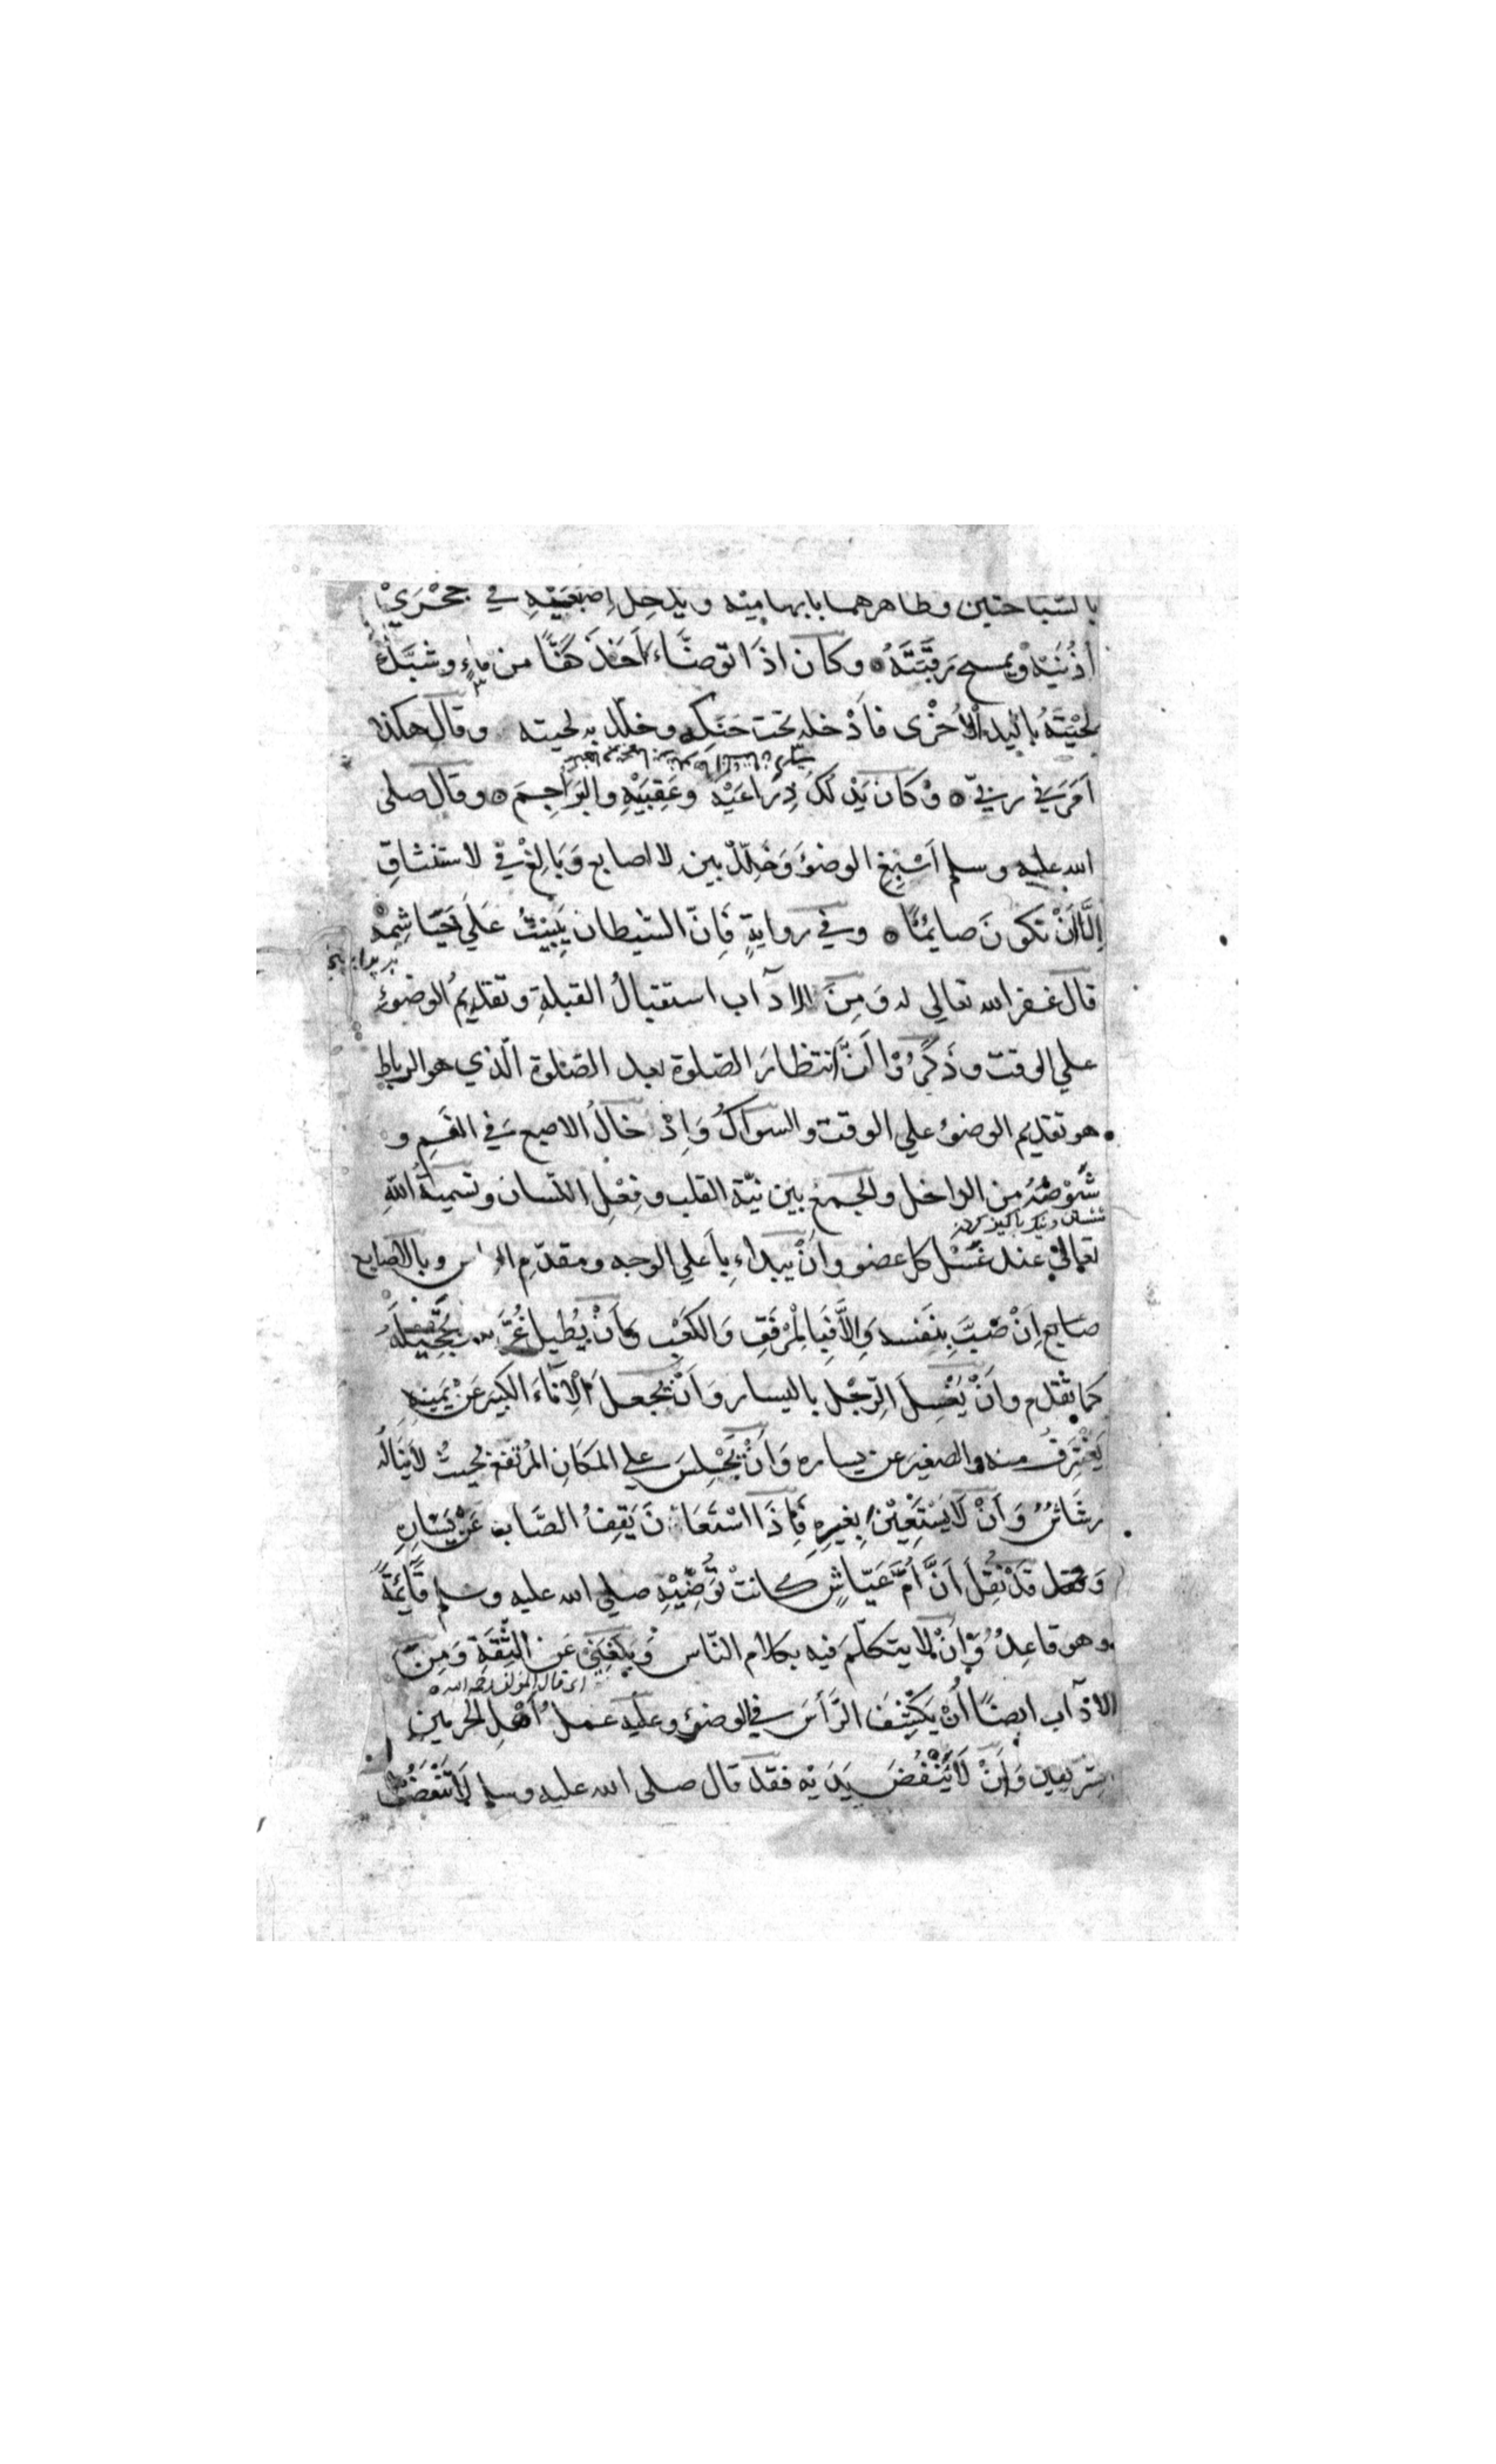 بالسَّبَّاحتين وظاهرهما بابهامَيْه ويُدْخِل إصْبَعَيْهِ في جُحْرَيْ
اُذُنَيْه ويمسح رَقَبَتَهُ وكان اذَا توضَّاءَ اَخَذَ كَفًّا من مَاءٍ وشَبَّكَ
لِحْيَتَهُ باليد الأُخْرٰى فاَدْخله تحت حَنَكِه وخلّل به لحيته وقال هكذا
اَمَرَني ربيّ وَكان يَدْلُكُ ذِرَاعَيْهِ وعَقِبَيْهِ والبَرَاجِمَ وقال صلى
الله عليه وسلم اَسْبِغِ الوضؤَ وَخَلِّلْ بين الاصابع وَبَالِغْ في الاستنشاقِ
اِلَّا اَنْ تكونَ صايمًا وفي روايةٍ فَاِنّ الشيطان يَبِيْتُ عَلَى خَيَاشِمِه
قال غفر الله تعالى له وَمِنَ الادآب استقبالُ القبلةِ وتقديمُ الوضوءِ
على الوقت وذَكَرُوْا اَنَّ انتظارَ الصلوة بعد الصلوة الّذي هو الرباط
هو تقديم الوضوءِ على الوقت والسواكُ وَاِدْخالُ الاصبع في الفَمِ و
شَوْصُهُ من الداخل والجمعُ بين نيّة القلب وفِعْلِ اللسان وتسميةُ اللهِ
تعالى عند غَسْلِ كل عضو واَنْ يبداءَ بِاَعلي الوجه ومقدّمِ الراس وبالاصابع
اِنْ صَبَّ بِنفسه وَاِلَّا فَبِالْمِرْفَقِ وَالكَعْبِ وَاَنْ يُطِيل غُرَّته وتَحْجِيْلَه
كما تقدّم واَنْ يَغْسِلَ الرِّجْل باليسار وَاَنْ يجعلَ الْاِنَاءَ الكبيرَ عَنْ يمينه
يَغْتَرِفُ منه والصغيرَ عن يساره وَاَنْ يَجْلِسَ علي المَكانِ المُرْتفعِ بحيثُ لا يَنَالُه
رشَاشٌ وَاَنْ لَا يَسْتَعِيْنَ بِغيرِهِ فَاِذَا اسْتَعَانَ يَقِفُ الصَّاب عَنْ يَسَارِهِ
قَدْ نُقِلَ اَنَّ اُمَّ عَيّاشٍ كانتْ تُوَضِّيْهِ صلى الله عليه وسلم قَائِمَةً
وهو قاعِدٌ وَاَنْ لا يتكلّمَ فيه بكلام النّاس عَن الثِقَةِ وَمِنَ
اي قال المؤلف رحمه الله
الادآب ايضًا اَنْ يَكْشِفَ الرَّأسَ في الوضوءِ وعليه عملُ اَهْلِ الحرمين
الشريفين وَاَنْ لَا يَنْفُضَ يَدَيْه فقد قال صلى الله عليه وسلم لَا تَنْفُضُوْا